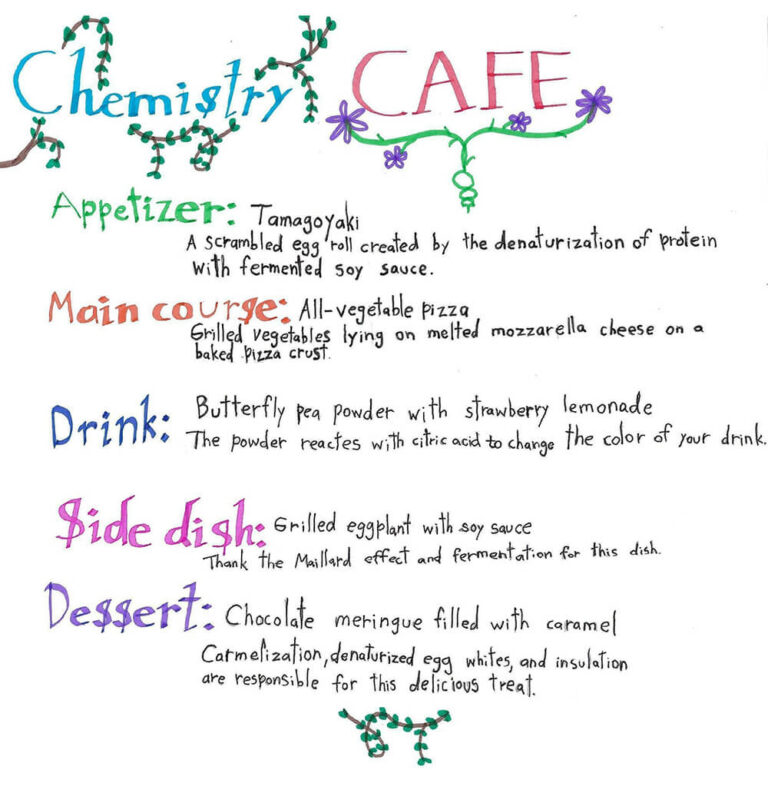 Chemistry CAFE
Appetizer: Tamagoyaki
A scrambled egg roll created by the denaturization of protein
with fermented soy sauce.
Main course: All-vegetable pizza
Grilled vegetables lying on melted mozzarella cheese on a
baked pizza crust.
Drink: Butterfly pea powder with strawberry lemonade
The powder reactes with citric acid to change the color of your drink.
Side dish: Grilled eggplant with soy sauce
Thank the Maillard effect and fermentation for this dish.
Dessert: Chocolate meringue filled with caramel
Carmelization, denaturized egg whites, and insulation
are responsible for this delicious treat.